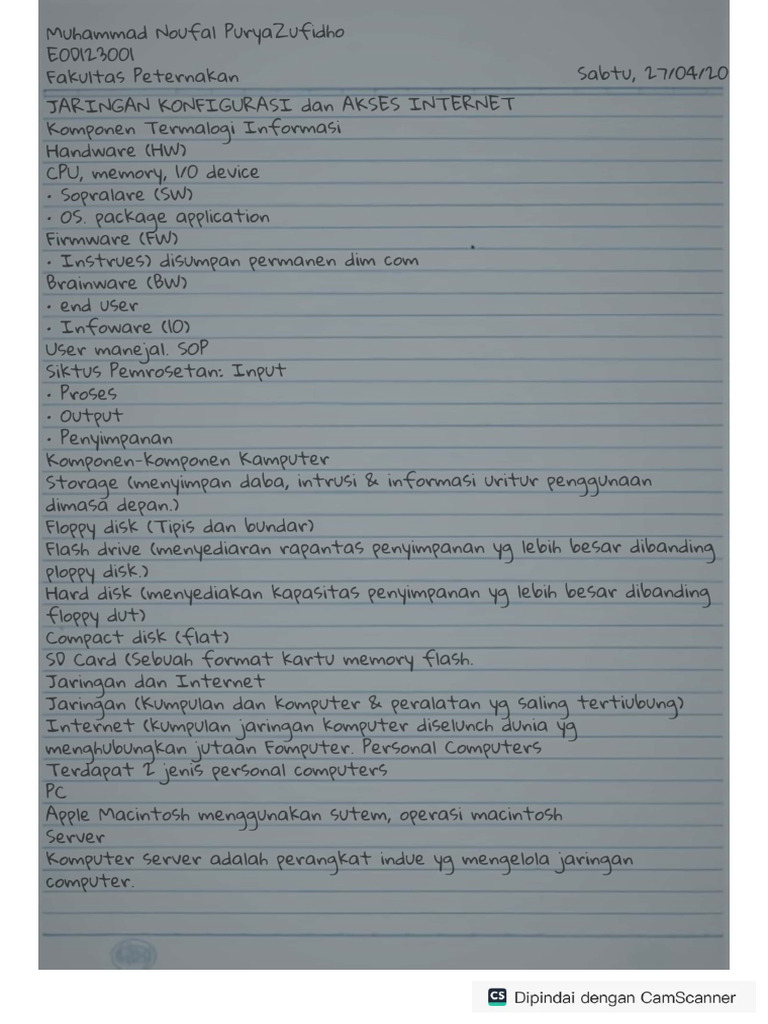 Muhammad Noufal PuryaZufidho
E00123001
Fakultas Peternakan
Sabtu, 27/04/20
JARINGAN KONFIGURASI dan AKSES INTERNET
Komponen Termalogi Informasi
Handware (HW)
CPU, memory, I/O device
• Sopralare (SW)
• OS. package application
Firmware (FW)
• Instrues) disumpan permanen dim com
Brainware (BW)
• end user
• Infoware (IO)
User manejal. SOP
Siktus Pemrosetan: Input
• Proses
• Output
• Penyimpanan
Komponen-komponen Kamputer
Storage (menyimpan daba, intrusi & informasi uritur penggunaan
dimasa depan.)
Floppy disk (Tipis dan bundar)
Flash drive (menyediaran rapantas penyimpanan yg lebih besar dibanding
ploppy disk.)
Hard disk (menyediakan kapasitas penyimpanan yg lebih besar dibanding
floppy dut)
Compact disk (flat)
SD Card (Sebuah format kartu memory flash.
Jaringan dan Internet
Jaringan (Kumpulan dan komputer & peralatan yg saling tertiubung)
Internet (kumpulan jaringan komputer diselunch dunia yg
menghubungkan jutaan Fomputer. Personal Computers
Terdapat 2 jenis personal computers
PC
Apple Macintosh menggunakan sutem, operasi macintosh
Server
Komputer server adalah perangkat indue yg mengelola jaringan
computer.
CS Dipindai dengan CamScanner